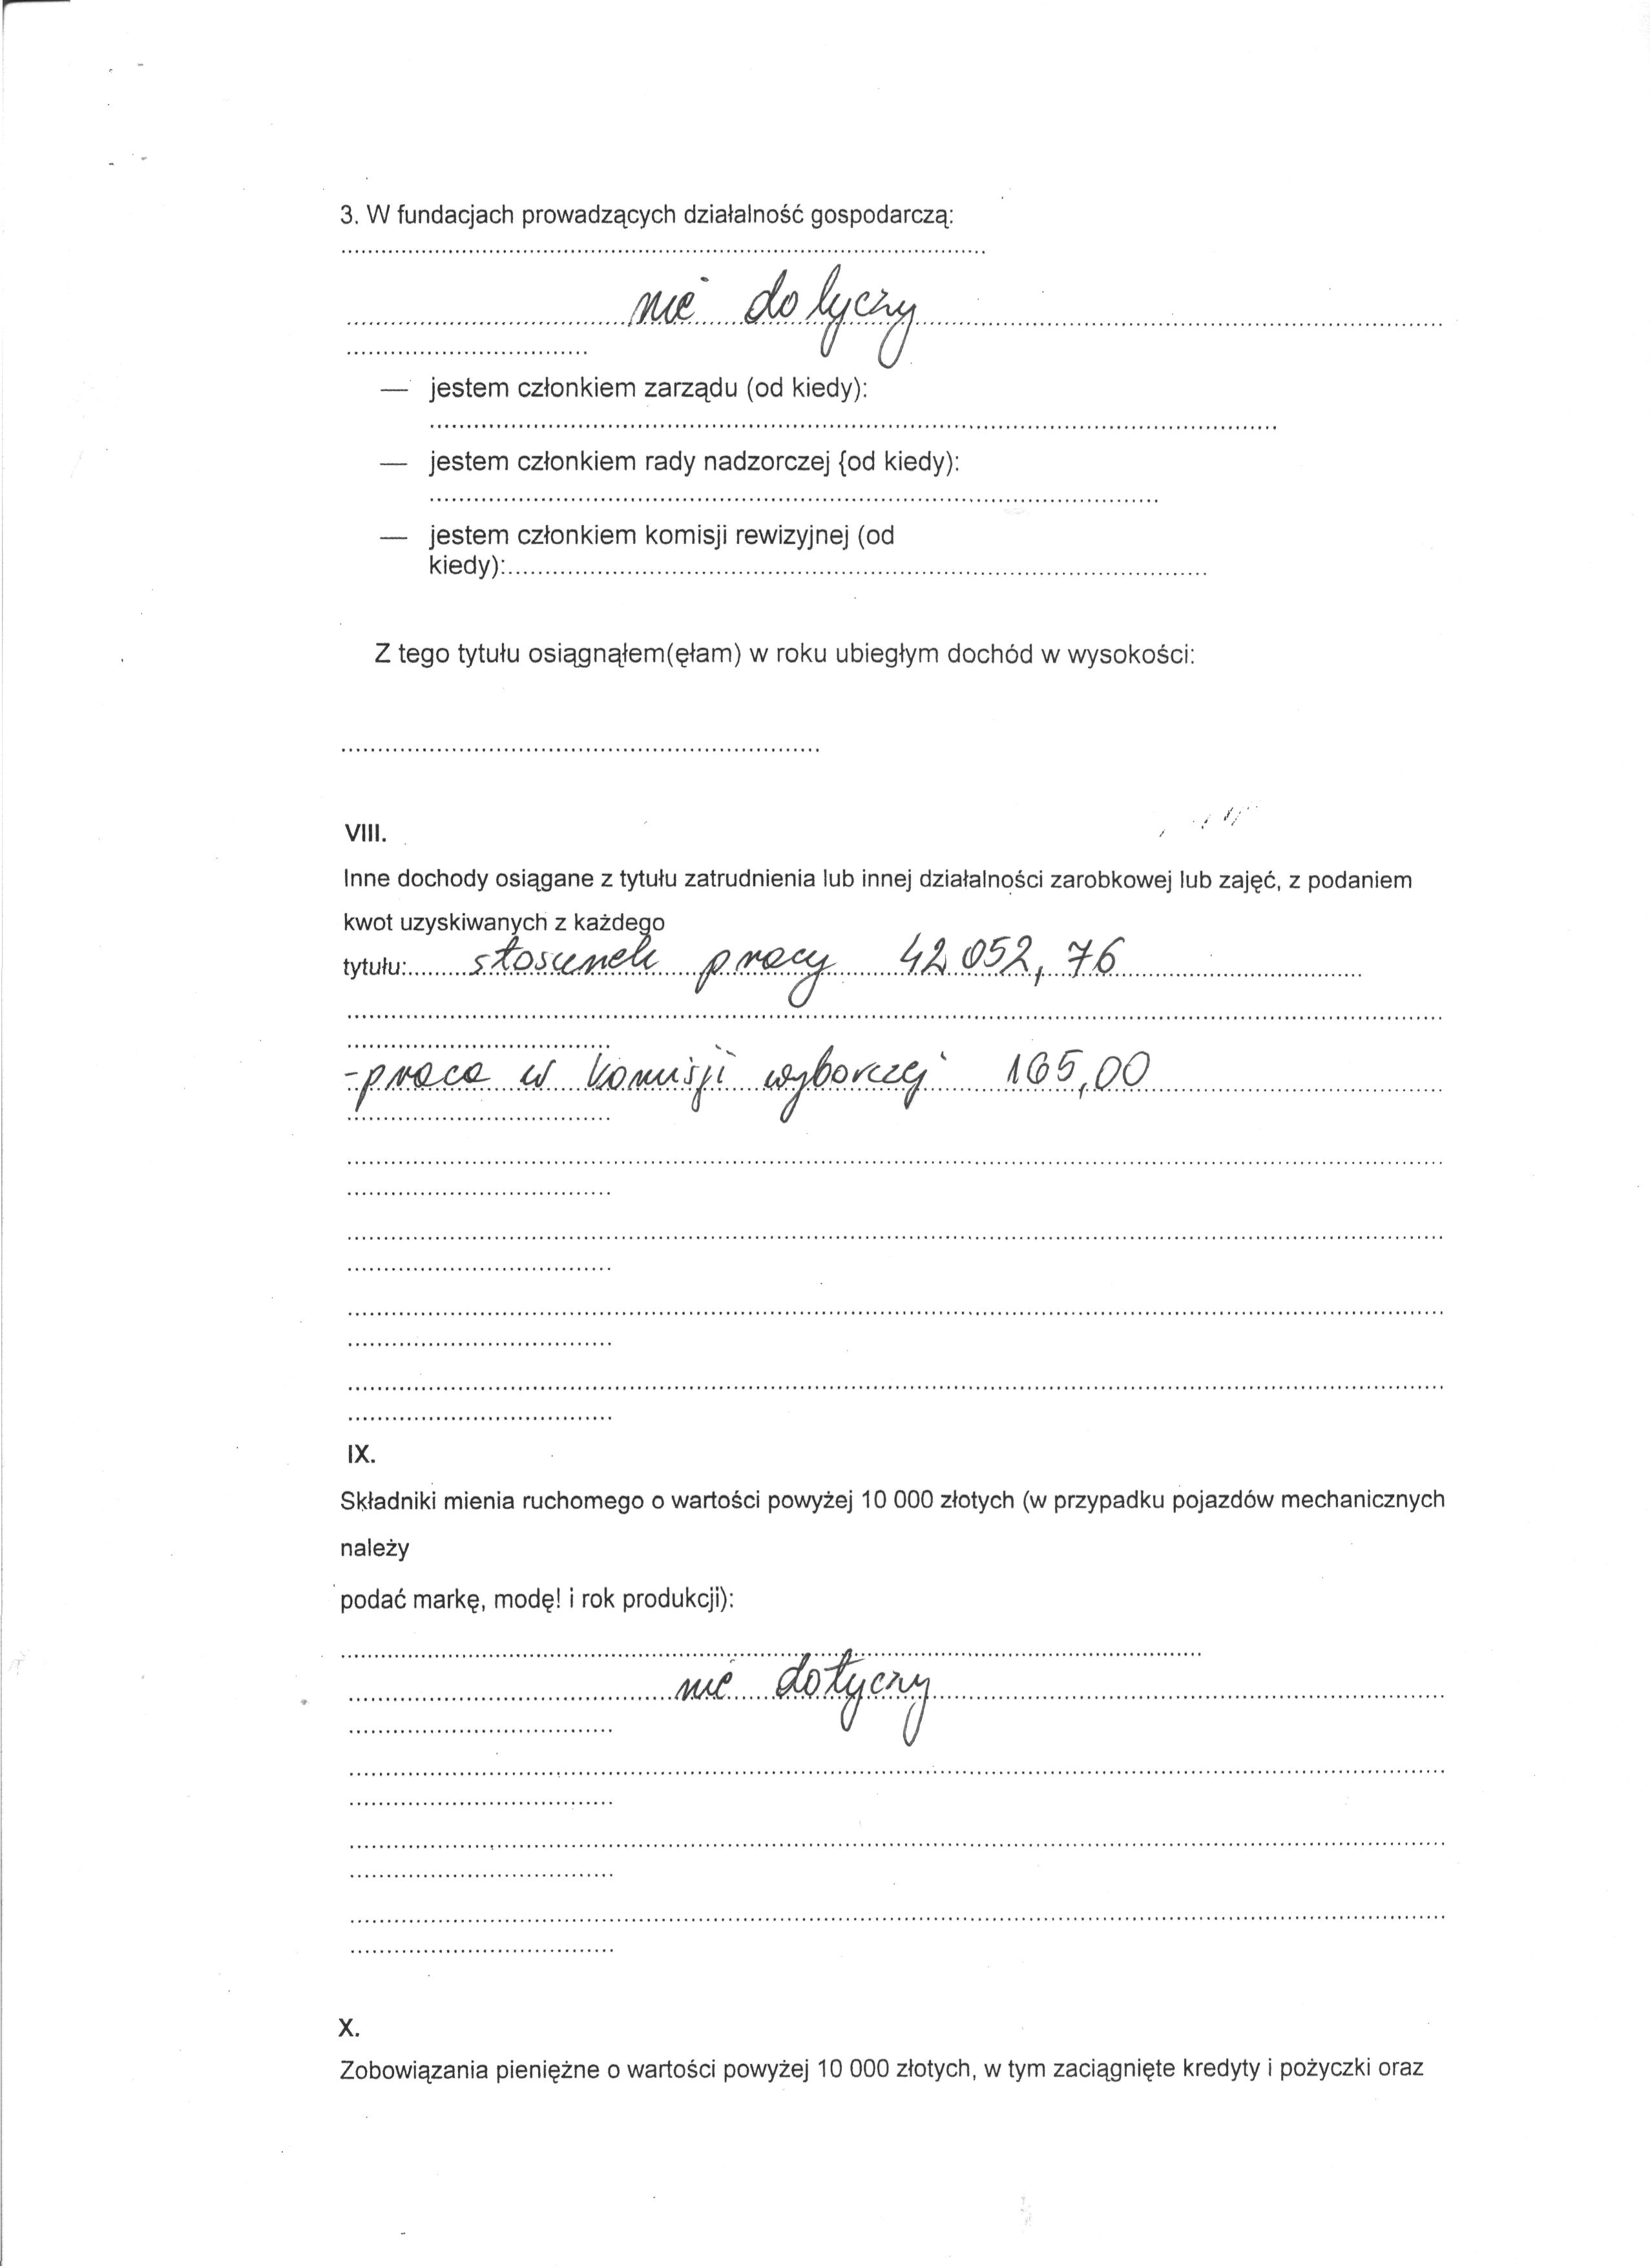 3. W fundacjach prowadzących działalność gospodarczą:
nie dotyczy
— jestem członkiem zarządu (od kiedy):
— jestem członkiem rady nadzorczej {od kiedy):
— jestem członkiem komisji rewizyjnej (od
kiedy):
Z tego tytułu osiągnąłem(ęłam) w roku ubiegłym dochód w wysokości:
VIII.
Inne dochody osiągane z tytułu zatrudnienia lub innej działalności zarobkowej lub zajęć, z podaniem
kwot uzyskiwanych z każdego
tytułu: stosunek pracy 42 052,76
- praca w komisji wyborczej 165,00
IX.
Składniki mienia ruchomego o wartości powyżej 10 000 złotych (w przypadku pojazdów mechanicznych
należy
podać markę, modę! i rok produkcji):
nie dotyczy
X.
Zobowiązania pieniężne o wartości powyżej 10 000 złotych, w tym zaciągnięte kredyty i pożyczki oraz